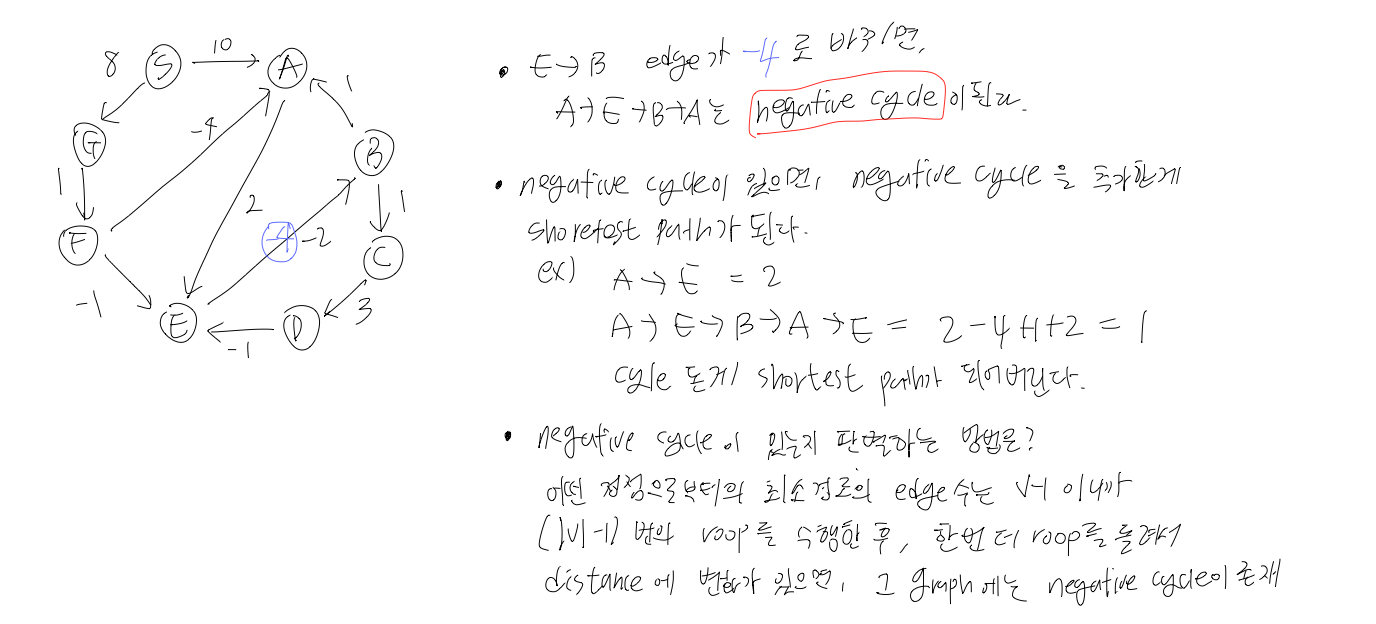 8
S
10
A
1
G
-4
B
1
2
1
F
-4
-2
C
-1
E
-1
D
3
• E→B edge가 -4로 바뀌면,
A→E→B→A는 negative cycle이 된다.
• negative cycle이 있으면, negative cycle을 추가한게
shoretest path가 된다.
ex) A→E = 2
A→E→B→A→E = 2-4+1+2 = 1
cyle 돈게 shortest path가 되어버린다.
• negative cycle이 있는지 판별하는 방법은?
어떤 정점으로부터의 최소경로의 edge수는 V-1 이니까
(|V|-1) 번의 roop를 수행한 후, 한번 더 roop를 돌려서
distance에 변화가 있으면, 그 graph에는 negative cycle이 존재